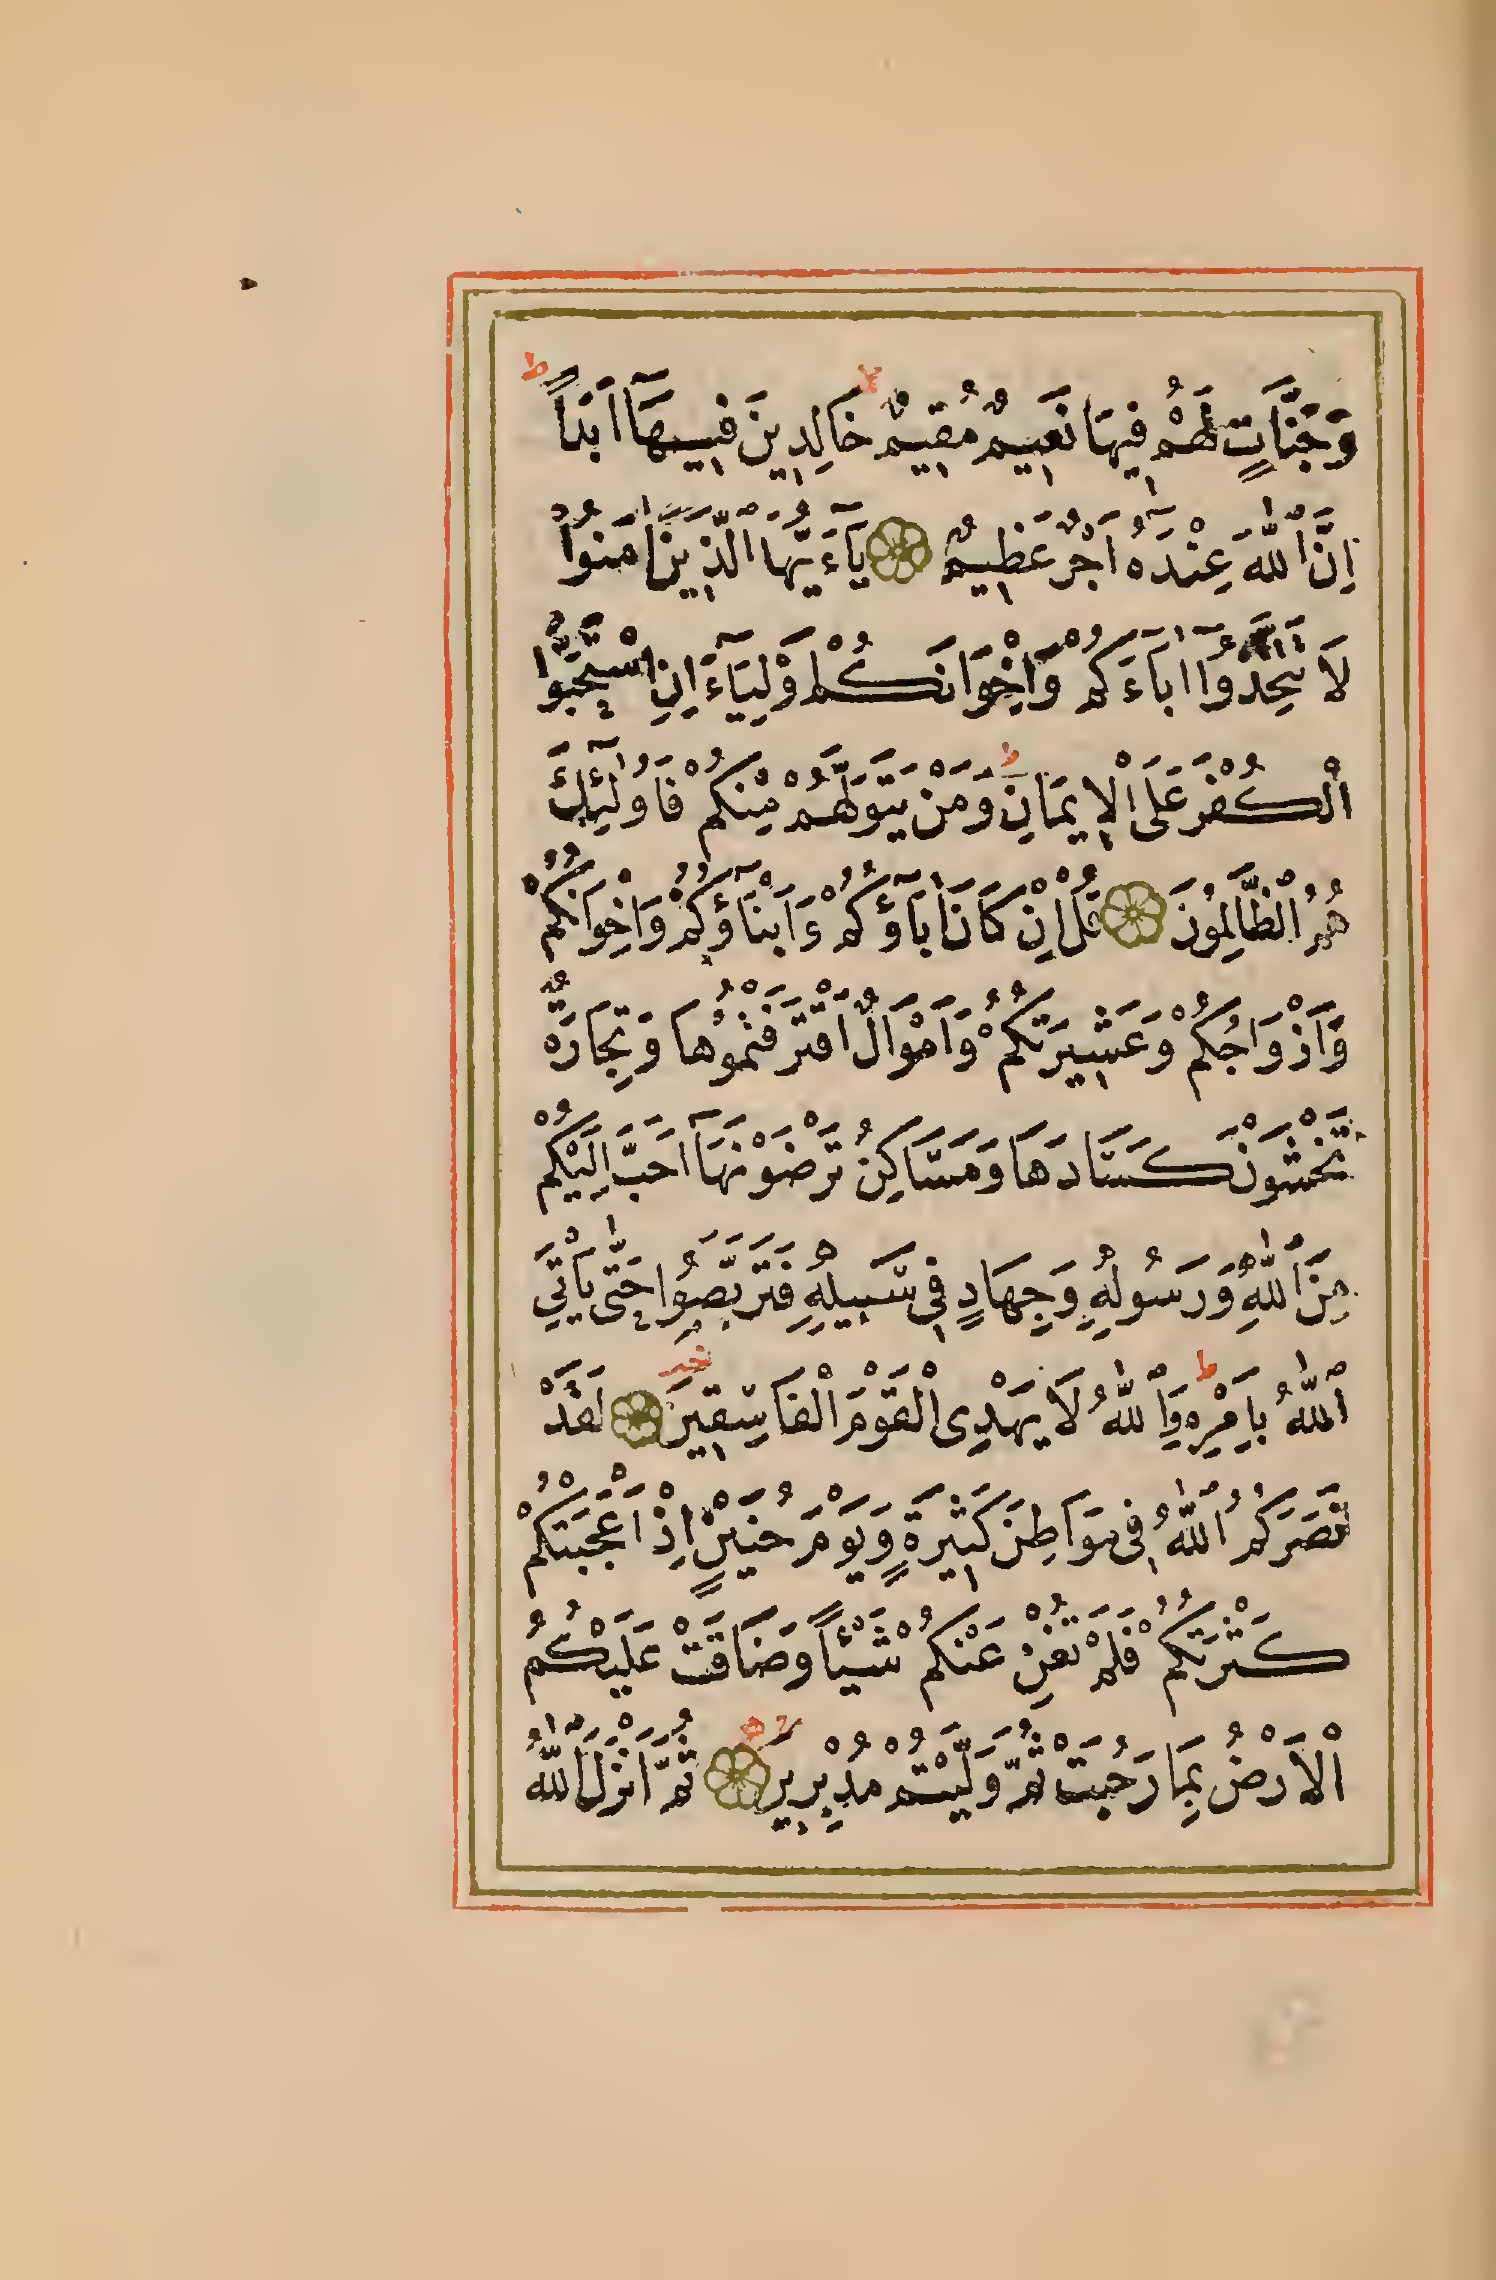 وَجَنَّاتٍ لَهُمْ فِيهَا نَعِيمٌ مُقِيمٌ خَالِدِينَ فِيهَآ اَبَدًا ط
اِنَّ ٱللّٰهَ عِنْدَهُٓ اَجْرٌ عَظِيمٌ يَآءَيُّهَا ٱلَّذِينَ اٰمَنُوا
لَا تَتَّخِذُوٓا اٰبَآءَكُمْ وَاِخْوَانَكُمْ اَوْلِيَآءَ اِنِ اسْتَحَبُّوا
ٱلْكُفْرَ عَلَى ٱلْاِيمَانِ ط وَمَنْ يَتَوَلَّهُمْ مِنْكُمْ فَاُولٰٓئِكَ
هُمُ ٱلظَّالِمُونَ قُلْ اِنْ كَانَ اٰبَآؤُكُمْ وَاَبْنَآؤُكُمْ وَاِخْوَانُكُمْ
وَاَزْوَاجُكُمْ وَعَشِيرَتُكُمْ وَاَمْوَالٌ اقْتَرَفْتُمُوهَا وَتِجَارَةٌ
تَخْشَوْنَ كَسَادَهَا وَمَسَاكِنُ تَرْضَوْنَهَآ اَحَبَّ اِلَيْكُمْ
مِنَ ٱللّٰهِ وَرَسُولِهِ وَجِهَادٍ فِي سَبِيلِهِ فَتَرَبَّصُوا حَتّٰى يَاْتِيَ
ٱللّٰهُ بِاَمْرِهِ ط وَٱللّٰهُ لَا يَهْدِى ٱلْقَوْمَ ٱلْفَاسِقِينَ لَقَدْ
نَصَرَكُمُ ٱللّٰهُ فِي مَوَاطِنَ كَثِيرَةٍ وَيَوْمَ حُنَيْنٍ اِذْ اَعْجَبَتْكُمْ
كَثْرَتُكُمْ فَلَمْ تُغْنِ عَنْكُمْ شَيْئًا وَضَاقَتْ عَلَيْكُمُ
ٱلْاَرْضُ بِمَا رَحُبَتْ ثُمَّ وَلَّيْتُمْ مُدْبِرِينَ ثُمَّ اَنْزَلَ ٱللّٰهُ